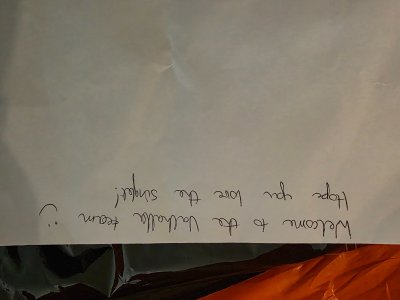 Welcome to the Valhalla team :)
Hope you love the singlet!